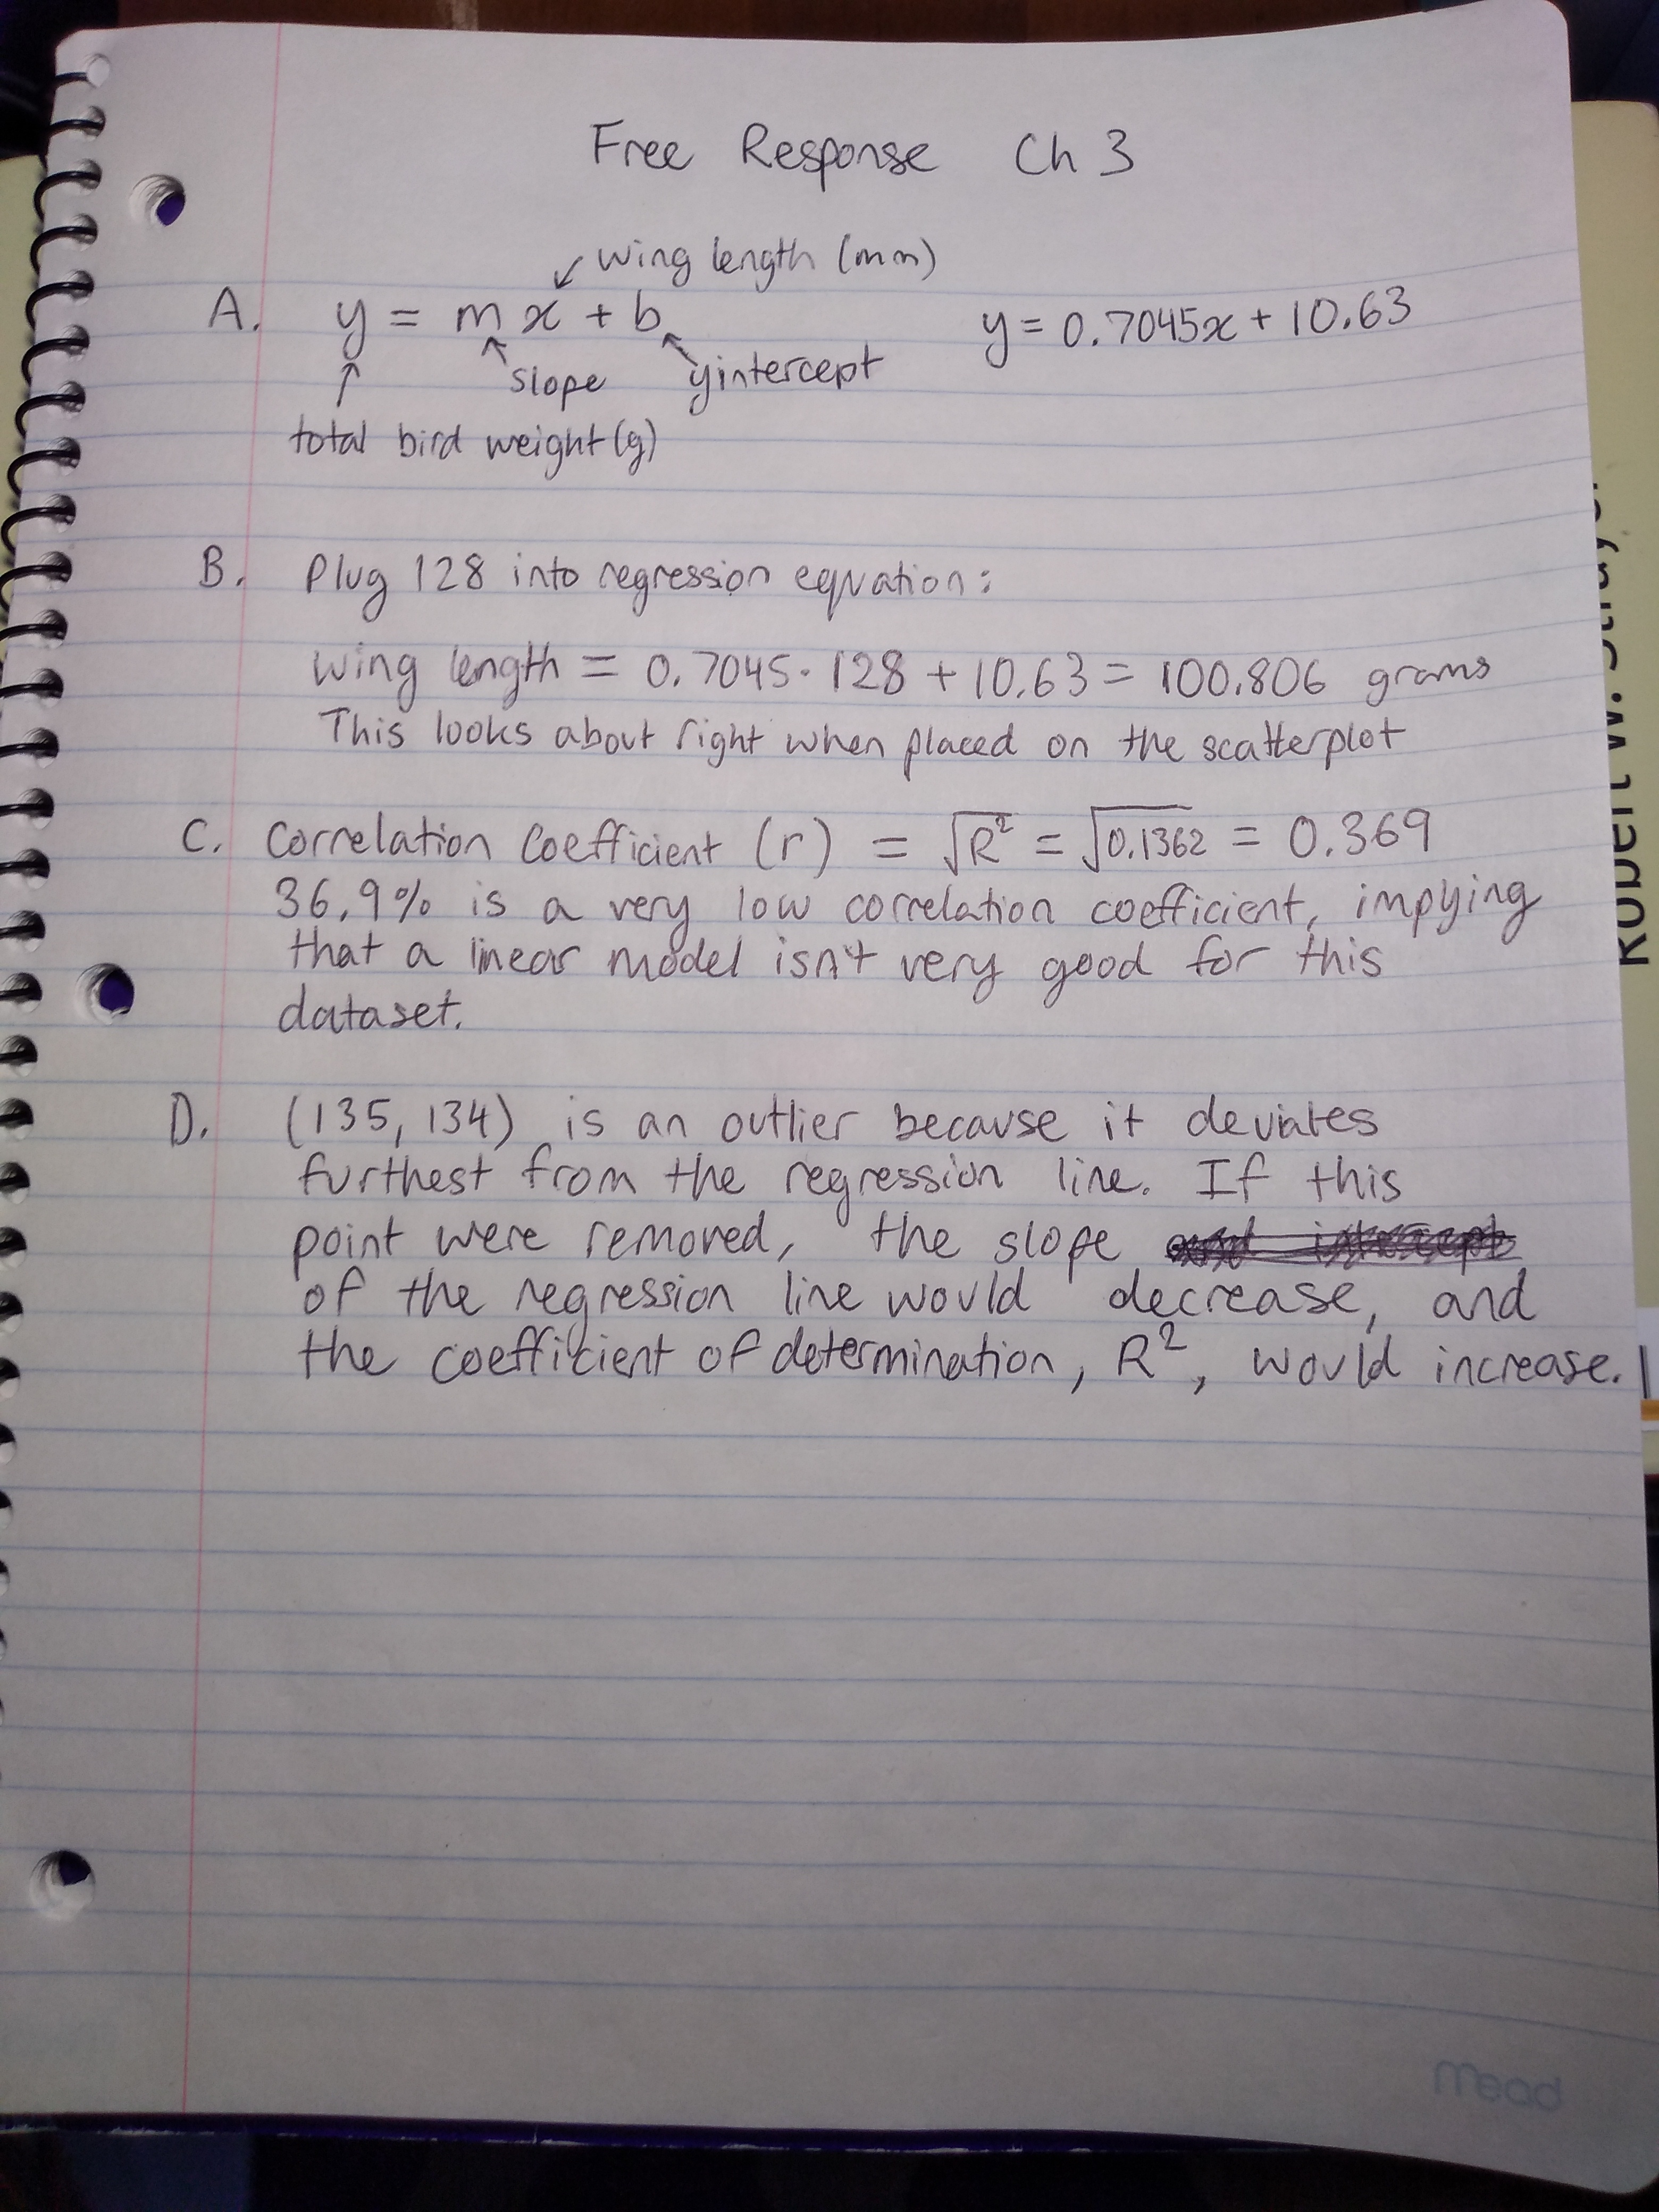 Free Response Ch 3
wing length (mm)
A. y = mx + b y = 0.7045x + 10.63
slope yintercept
total bird weight (g)
B. Plug 128 into regression equation:
wing length = 0.7045 · 128 + 10.63 = 100.806 grams
This looks about right when placed on the scatterplot
C. Correlation Coefficient (r) = √R² = √0.1362 = 0.369
36.9% is a very low correlation coefficient, impying
that a linear model isn't very good for this
dataset.
D. (135, 134) is an outlier because it deviates
furthest from the regression line. If this
point were removed, the slope
of the regression line would decrease, and
the coefficient of determination, R², would increase.
mead